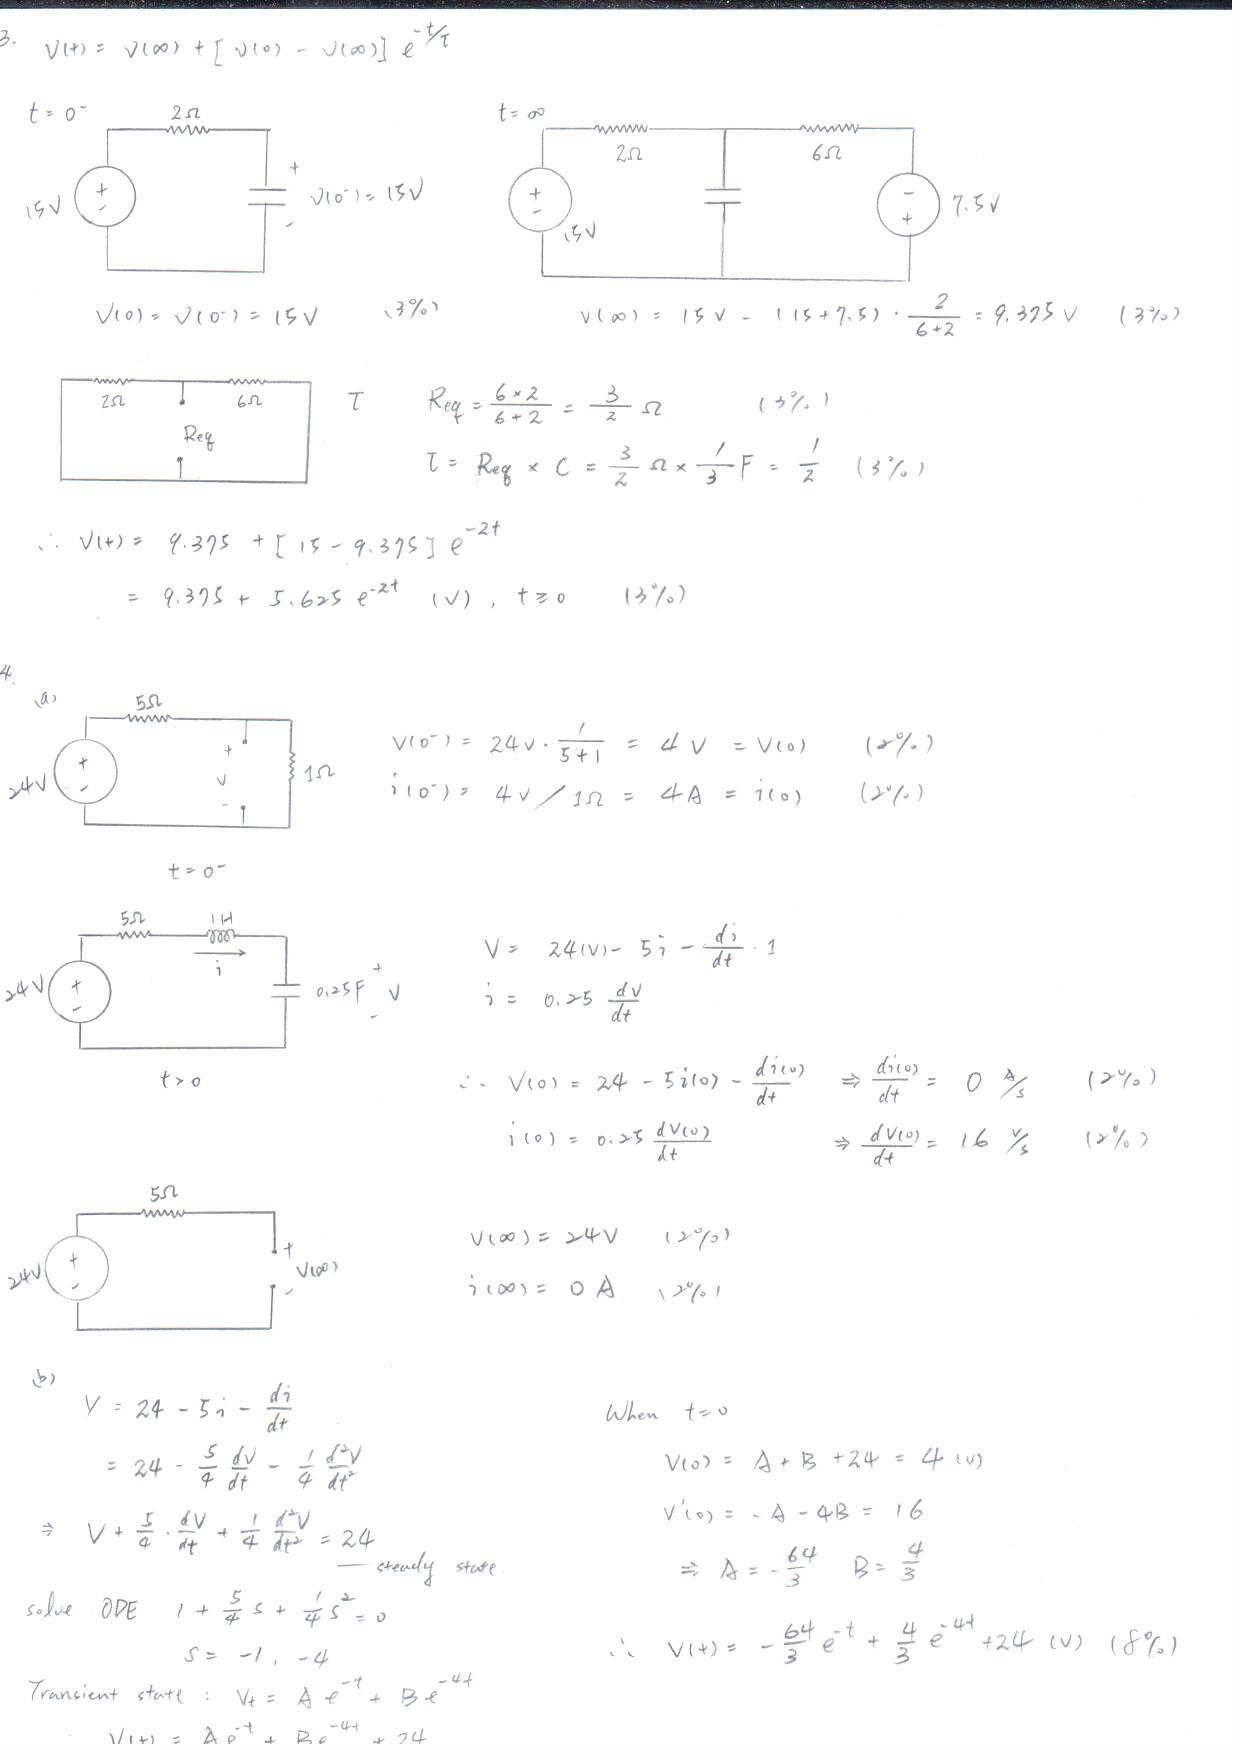 3. V(t) = V(∞) + [ V(0) - V(∞)] e^{-t/τ}
t = 0⁻ 2Ω
15V + - + V(0⁻) = 15V -
t = ∞ 2Ω 6Ω
+ - 15V - + 7.5V
V(0) = V(0⁻) = 15V (3%)
V(∞) = 15V - (15+7.5) · 2/(6+2) = 9.375 V (3%)
2Ω 6Ω Req
τ Req = (6×2)/(6+2) = 3/2 Ω (3%)
τ = Req × C = 3/2 Ω × 1/3 F = 1/2 (3%)
∴ V(t) = 9.375 + [ 15 - 9.375 ] e^{-2t}
= 9.375 + 5.625 e^{-2t} (V), t ≥ 0 (3%)
4.
(a) 5Ω
24V + - + V - 1Ω
t = 0⁻
V(0⁻) = 24V · 1/(5+1) = 4 V = V(0) (2%)
i(0⁻) = 4V / 1Ω = 4A = i(0) (2%)
5Ω 1H
i
24V + - 0.25F + V -
t > 0
V = 24(V) - 5i - di/dt · 1
i = 0.25 dV/dt
∴ V(0) = 24 - 5i(0) - di(0)/dt ⇒ di(0)/dt = 0 A/s (2%)
i(0) = 0.25 dV(0)/dt ⇒ dV(0)/dt = 16 V/s (2%)
5Ω
24V + - + V(∞) -
V(∞) = 24V (2%)
i(∞) = 0 A (2%)
(b)
V = 24 - 5i - di/dt
= 24 - 5/4 dV/dt - 1/4 d²V/dt²
⇒ V + 5/4 · dV/dt + 1/4 d²V/dt² = 24
— steady state
solve ODE 1 + 5/4 s + 1/4 s² = 0
s = -1, -4
Transient state : Vt = A e^{-t} + B e^{-4t}
V(t) = A e^{-t} + B e^{-4t} + 24
When t=0
V(0) = A + B + 24 = 4 (V)
V'(0) = -A - 4B = 16
⇒ A = -64/3 B = 4/3
∴ V(t) = -64/3 e^{-t} + 4/3 e^{-4t} + 24 (V) (8%)